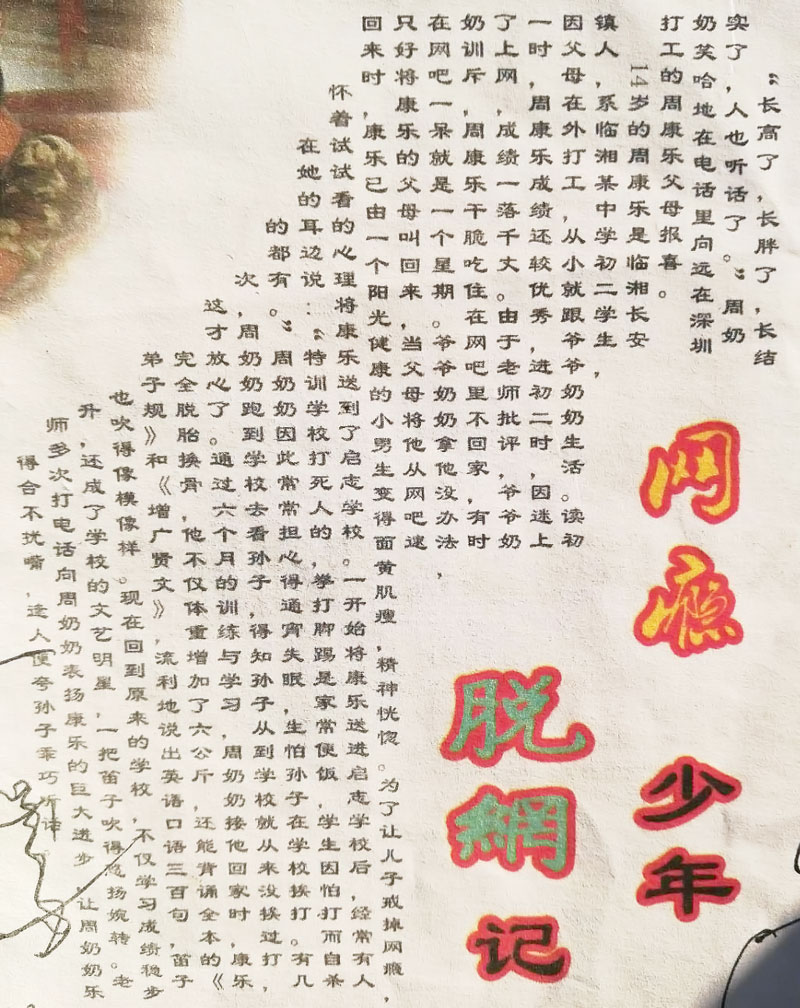 网瘾少年
脱網记
“长高了,长胖了,长结
实了,人也听话了。”周奶
奶笑哈地在电话里向远在深圳
打工的周康乐父母报喜。
14岁的周康乐是临湘长安
镇人,系临湘某中学初二学生,
因父母在外打工,从小就跟爷爷奶奶生活。读初
一时,周康乐成绩还较优秀,进初二时,因迷上
了上网,成绩一落千丈。由于老师批评,爷爷奶
奶训斥,周康乐干脆吃住在网吧里不回家,有时
在网吧一呆就是一个星期。爷爷奶奶拿他没办法,
只好将康乐的父母叫回来,当父母将他从网吧逮
回来时,康乐已由一个阳光健康的小男生变得面黄肌瘦,精神恍惚。为了让儿子戒掉网瘾,
怀着试试看的心理将康乐送到了启志学校。一开始将康乐送进启志学校后,经常有人
在她的耳边说:“特训学校打死人的,拳打脚踢是家常便饭,学生因怕打而自杀
的都有。”周奶奶因此常常担心得通宵失眠,生怕孙子在学校挨打。有几
次,周奶奶跑到学校去看孙子,得知孙子从到学校就从来没挨过打,
这才放心了。通过六个月的训练与学习,周奶奶接他回家时,康乐
完全脱胎换骨,他不仅体重增加了六公斤,还能背诵全本的《
弟子规》和《增广贤文》,流利地说出英语口语三百句,笛子
也吹得像模像样。现在回到原来的学校,不仅学习成绩稳步
升,还成了学校的文艺明星,一把笛子吹得悠扬婉转。老
师多次打电话向周奶奶表扬康乐的巨大进步,让周奶奶乐
得合不扰嘴,逢人便夸孙子乖巧听